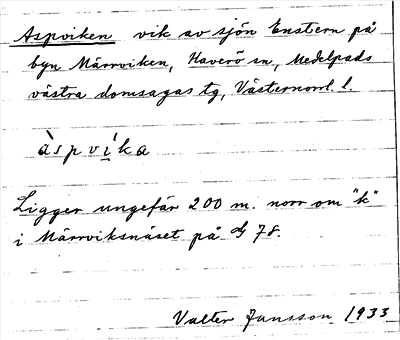 Aspviken vik av sjön Enstern på
byn Märrviken, Haverö sn, Medelpads
västra domsagas tg, Västernorrl. l.
àspvíka
Ligger ungefär 200 m. norr om "k"
i Märrviksnäset på 78.
Valter Jansson 1933